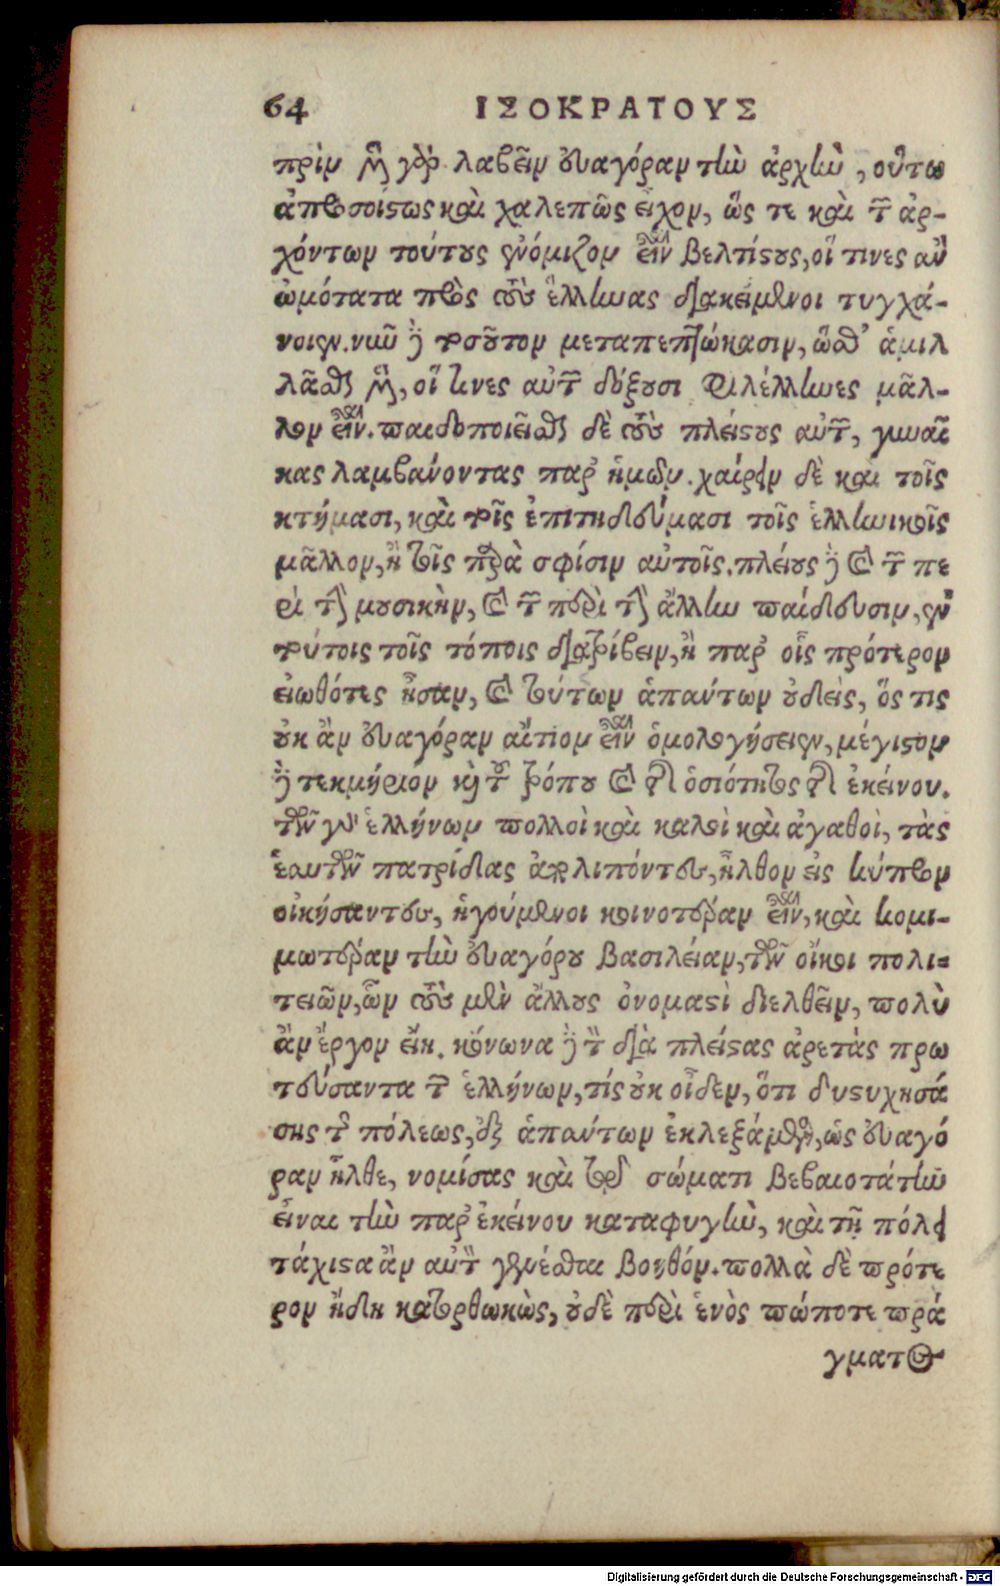 64 ΙΣΟΚΡΑΤΟΥΣ
πρὶν μὲν γὰρ λαβεῖν Εὐαγόραν τὴν ἀρχὴν, οὕτω
ἀπροσοίστως καὶ χαλεπῶς εἶχον, ὥς τε καὶ τῶν ἀρ-
χόντων τούτους ἐνόμιζον εἶναι βελτίστους, οἵ τινες ἂν
ὠμότατα πρὸς τοὺς ἕλληνας διακείμενοι τυγχά-
νοιεν. νῦν δὲ τοσοῦτον μεταπεπτώκασιν, ὥσθ' ἁμιλ
λᾶσθαι μὲν, οἵ τινες αὐτῶν δόξουσι φιλέλληνες μᾶλ-
λον εἶναι. παιδοποιεῖσθαι δὲ τοὺς πλείστους αὐτῶν, γυναῖ
κας λαμβάνοντας παρ' ἡμῶν. χαίρειν δὲ καὶ τοῖς
κτήμασι, καὶ τοῖς ἐπιτηδεύμασι τοῖς ἑλληνικοῖς
μᾶλλον, ἢ τοῖς παρὰ σφίσιν αὐτοῖς. πλείους δὲ καὶ τῶν πε
ρὶ τὴν μουσικὴν, καὶ τῶν περὶ τὴν ἄλλην παίδευσιν, ἐν
τούτοις τοῖς τόποις διατρίβειν, ἢ παρ' οἷς πρότερον
εἰωθότες ἦσαν, καὶ τούτων ἁπάντων οὐδεὶς, ὅς τις
οὐκ ἂν Εὐαγόραν αἴτιον εἶναι ὁμολογήσειεν, μέγιστον
δὲ τεκμήριον καὶ τοῦ τρόπου καὶ τῆς ὁσιότητος τῆς ἐκείνου.
τῶν γὰρ ἑλλήνων πολλοὶ καὶ καλοὶ καὶ ἀγαθοὶ, τὰς
ἑαυτῶν πατρίδας ἀπολιπόντες, ἦλθον εἰς κύπρον
οἰκήσαντες, ἡγούμενοι κοινοτέραν εἶναι, καὶ κομι-
μωτέραν τὴν Εὐαγόρου βασιλείαν, τῶν οἴκοι πολι-
τειῶν, ὧν τοὺς μὲν ἄλλους ὀνομαστὶ διελθεῖν, πολὺ
ἂν ἔργον εἴη. κόνωνα δὲ τὸν διὰ πλείστας ἀρετὰς πρω
τεύσαντα τῶν ἑλλήνων, τίς οὐκ οἶδεν, ὅτι δυστυχησά
σης τῆς πόλεως, ἐξ ἁπάντων ἐκλεξάμενος, ὡς Εὐαγό
ραν ἦλθε, νομίσας καὶ τῷ σώματι βεβαιοτάτην
εἶναι τὴν παρ' ἐκείνου καταφυγὴν, καὶ τῇ πόλει
τάχιστα ἂν αὐτὸν γενέσθαι βοηθόν. πολλὰ δὲ πρότε
ρον ἤδη κατορθωκὼς, οὐδὲ περὶ ἑνὸς πώποτε πρά
γματος
Digitalisierung gefördert durch die Deutsche Forschungsgemeinschaft - DFG